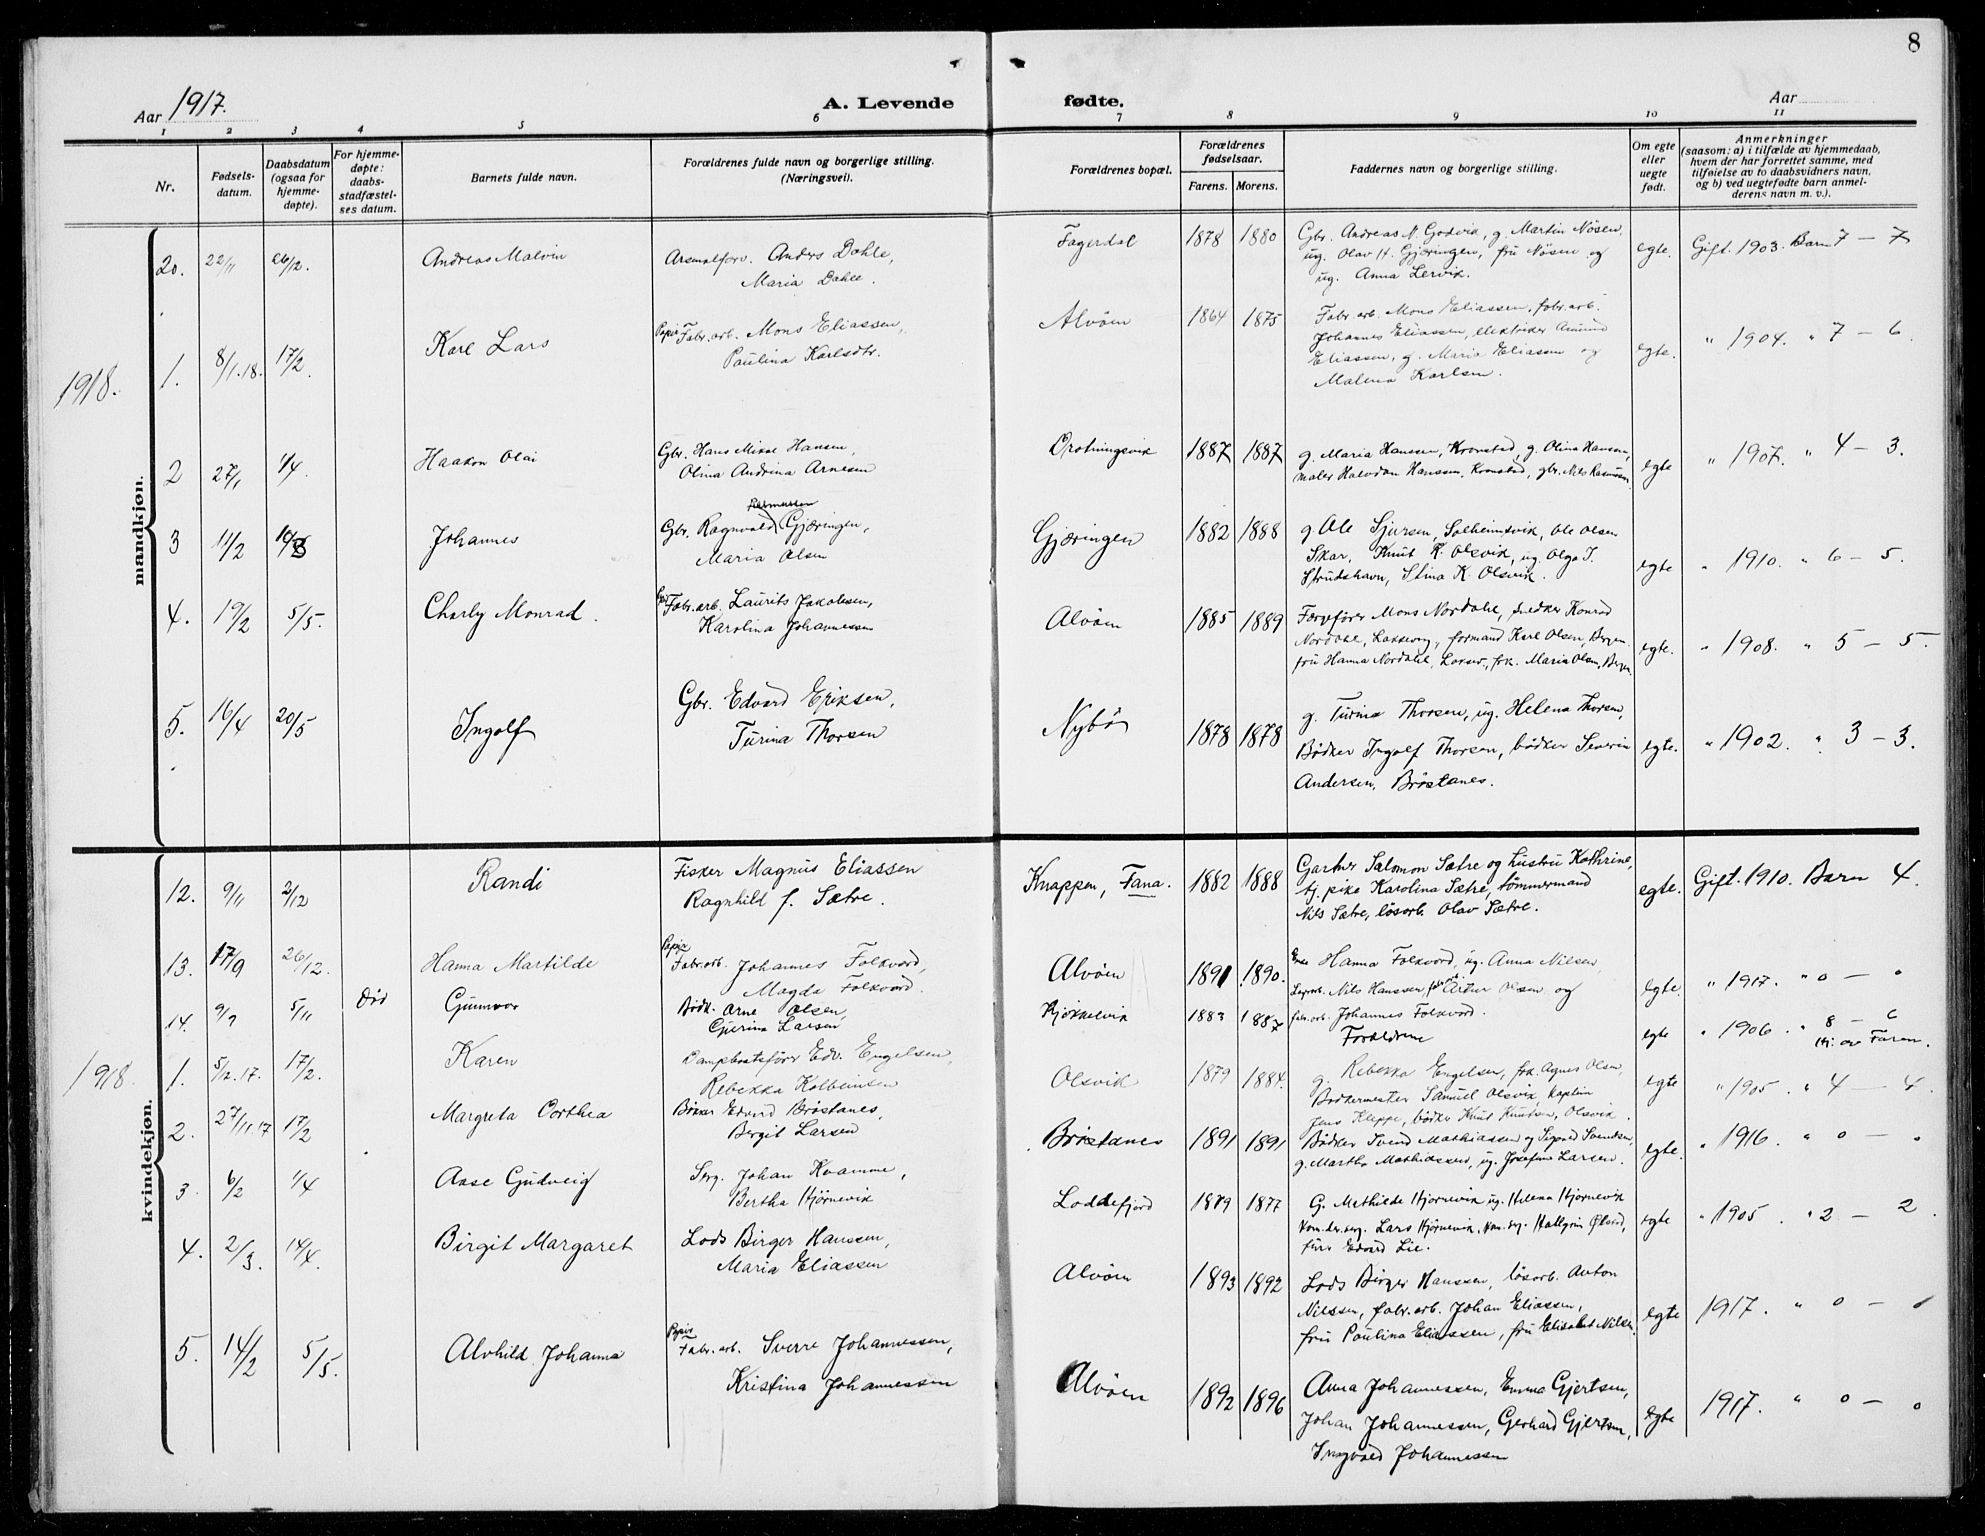 8
Aar 1917.
A. Levende fødte.
Aar
1 2 3 4 5 6 7 8 9 10 11
Nr.
Fødsels-
datum.
Daabsdatum
(ogsaa for
hjemme-
døpte).
For hjemme-
døpte:
daabs-
stadfæstel-
ses datum.
Barnets fulde navn.
Forældrenes fulde navn og borgerlige stilling.
(Næringsvei).
Forældrenes bopæl.
Forældrenes
fødselsaar.
Farens. Morens.
Faddernes navn og borgerlige stilling.
Om egte
eller
uegte
født.
Anmerkninger
(saasom: a) i tilfælde av hjemmedaab,
hvem der har forrettet samme, med
tilføielse av to daabsvidners navn,
og b) ved uegtefødte barn anmel-
derens navn m. v.).
mandkjøn.
20. 22/11 26/12. Andreas Malvin
Arsenalforv. Anders Dahle,
Maria Dahle.
Fagerdal 1878 1880
Gbr. Andreas N. Godvik, g. Martin Nösen,
ug. Olav H. Gjæringen, fru Nösen og
ug. Anna Lervik.
egte. Gift. 1903. Barn 7 — 7
1918.
1. 8/1.18. 17/2. Karl Lars
Papir Fabr. arb. Mons Eliassen,
Paulina Karlsdtr.
Alvöen 1864 1875
Fabr. arb. Mons Eliassen, fabr. arb.
Johannes Eliassen, elektriker Amund
Eliassen, g. Maria Eliassen og
Malena Karlsen.
egte. " 1904. " 7 — 6.
2 27/1 1/4. Haakon Olai
Gbr. Hans Mikal Hansen,
Olina Andrina Arnesen
Drotningsvik 1887 1887
g. Maria Hanssen, Kronstad, g. Olina Hansen,
maler Halvdan Hanssen, Kronstad, gbr. Nils Rasmussen.
egte " 1907. " 4 — 3.
3 11/2 Johannes
Rasmussen
Gbr. Ragnvald Gjæringen,
Maria Olsen
Gjæringen 1882 1888
g. Ole Sjursen, Solheimsvik, Ole Olsen
Skar, Knut K. Olsvik, ug. Olga J.
Strudshavn, Stina K. Olsvik.
egte " 1910. " 6 — 5.
4. 19/2 5/5. Charly Monrad.
Fabr. arb. Laurits Jakobsen,
Karolina Johannessen
Alvöen 1885 1889
Mons Nordahl, snedker Konrad
Nordahl, formand Karl Olsen, Bergen
fru Hanna Nordahl, frk. Maria Olsen, Bergen
egte. " 1908. " 5 — 5.
5. 16/4 20/5 Ingolf
Gbr. Edvard Eriksen,
Turina Thorsen
Nybö 1878 1878
g. Turina Thorsen, ug. Helena Thorsen,
Bödker Ingolf Thorsen, bödker Severin
Andersen, Bröstanes.
egte. " 1902. " 3 — 3.
kvindekjøn.
12. 9/11 2/12 Randi
Fisker Magnus Eliassen
Ragnhild f. Sætre.
Knappen, Fana. 1882 1888
Gartner Salomon Sætre og hustru Kathrine,
tj. pike Karolina Sætre, tömmermand
Nils Sætre, lösarb. Olav Sætre.
egte. Gift. 1910. Barn 4.
13. 17/9 26/12. Hanna Martilde
Papir Fabr. arb. Johannes Folkvord,
Magda Folkvord.
Alvöen 1891 1890.
Hanna Folkvord, ug. Anna Nilsen,
Nils Hanssen, Artur Olsen og
fabr. arb. Johannes Folkvord.
egte. " 1917. " 0 — "
14. 9/9 5/11 Död Gunnvor
Bödk. Arne Olsen,
Gjerina Larsen
Kjökkelvik 1883 1887
Forældrene
egte " 1906 " 8 — 6
Hj. av Faren.
1918.
1. 5/12.17. 17/2. Karen
Dampbaatsförer Edv. Engelsen,
Rebekka Kolbeinsen
Olsvik 1879 1884.
g. Rebekka Engelsen, frk. Agnes Olsen,
Bödkermester Samuel Olsvik, kaptein
Jens Kleppe, bödker Knut Knutsen, Olsvik.
egte " 1905 " 4 — 4.
2. 27/11.17 17/2 Margreta Dorthea
Bökker Edvard Bröstanes,
Bergit Larsen
Bröstanes 1891 1891
Bödker Svend Mathiassen og Sigrid Svendsen,
g. Martha Mathiassen, ug. Josefine Larsen.
egte. " 1916 " 0 — "
3. 6/2 1/4 Aase Gudveig
Serg. Johan Kvamme,
Bertha Hjörnevik
Loddefjord 1879 1877
G. Methilde Hjörnevik ug. Helena Hjörnevik
Lars Hjörnevik, Hallgrim Ølsed,
Edvard Lie.
egte " 1905 " 2 — 2.
4. 2/3. 14/4. Birgit Margaret
Lods Birger Hanssen,
Maria Eliassen
Alvöen 1893 1892
Lods Birger Hanssen, lösarb. Anton
Nilssen, fabr. arb. Johan Eliassen,
fru Paulina Eliassen, fru Elisabet Nilsen
egte 1917. " 0 — "
5. 14/2 5/5. Alvhild Johanna
Papir Fabr. arb. Sverre Johannessen,
Kristina Johannessen
Alvöen 1892 1896
Anna Johannessen, Emma Gjertsen,
Johan Johannessen, Gerhard Gjertsen,
Ingvald Johannessen
egte 1917. " 0 — "